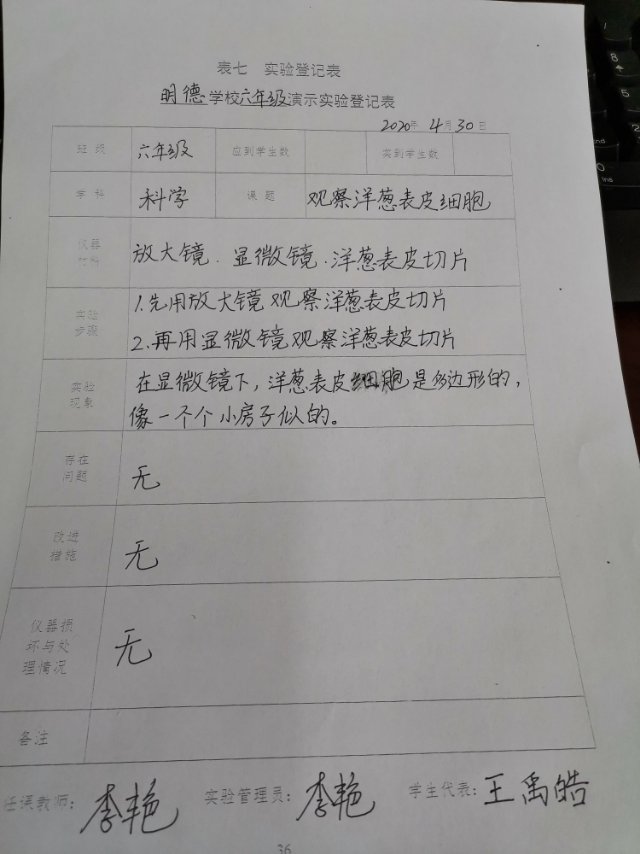 表七 实验登记表
明德学校六年级演示实验登记表
2020年 4月30日
班级 六年级 应到学生数 实到学生数
学科 科学 课题 观察洋葱表皮细胞
仪器
材料
放大镜.显微镜.洋葱表皮切片
实验
步骤
1.先用放大镜观察洋葱表皮切片
2.再用显微镜观察洋葱表皮切片
实验
现象
在显微镜下,洋葱表皮细胞是多边形的,
像一个个小房子似的。
存在
问题
无
改进
措施
无
仪器损
坏与处
理情况
无
备注
任课教师: 李艳 实验管理员: 李艳 学生代表: 王禹皓
36